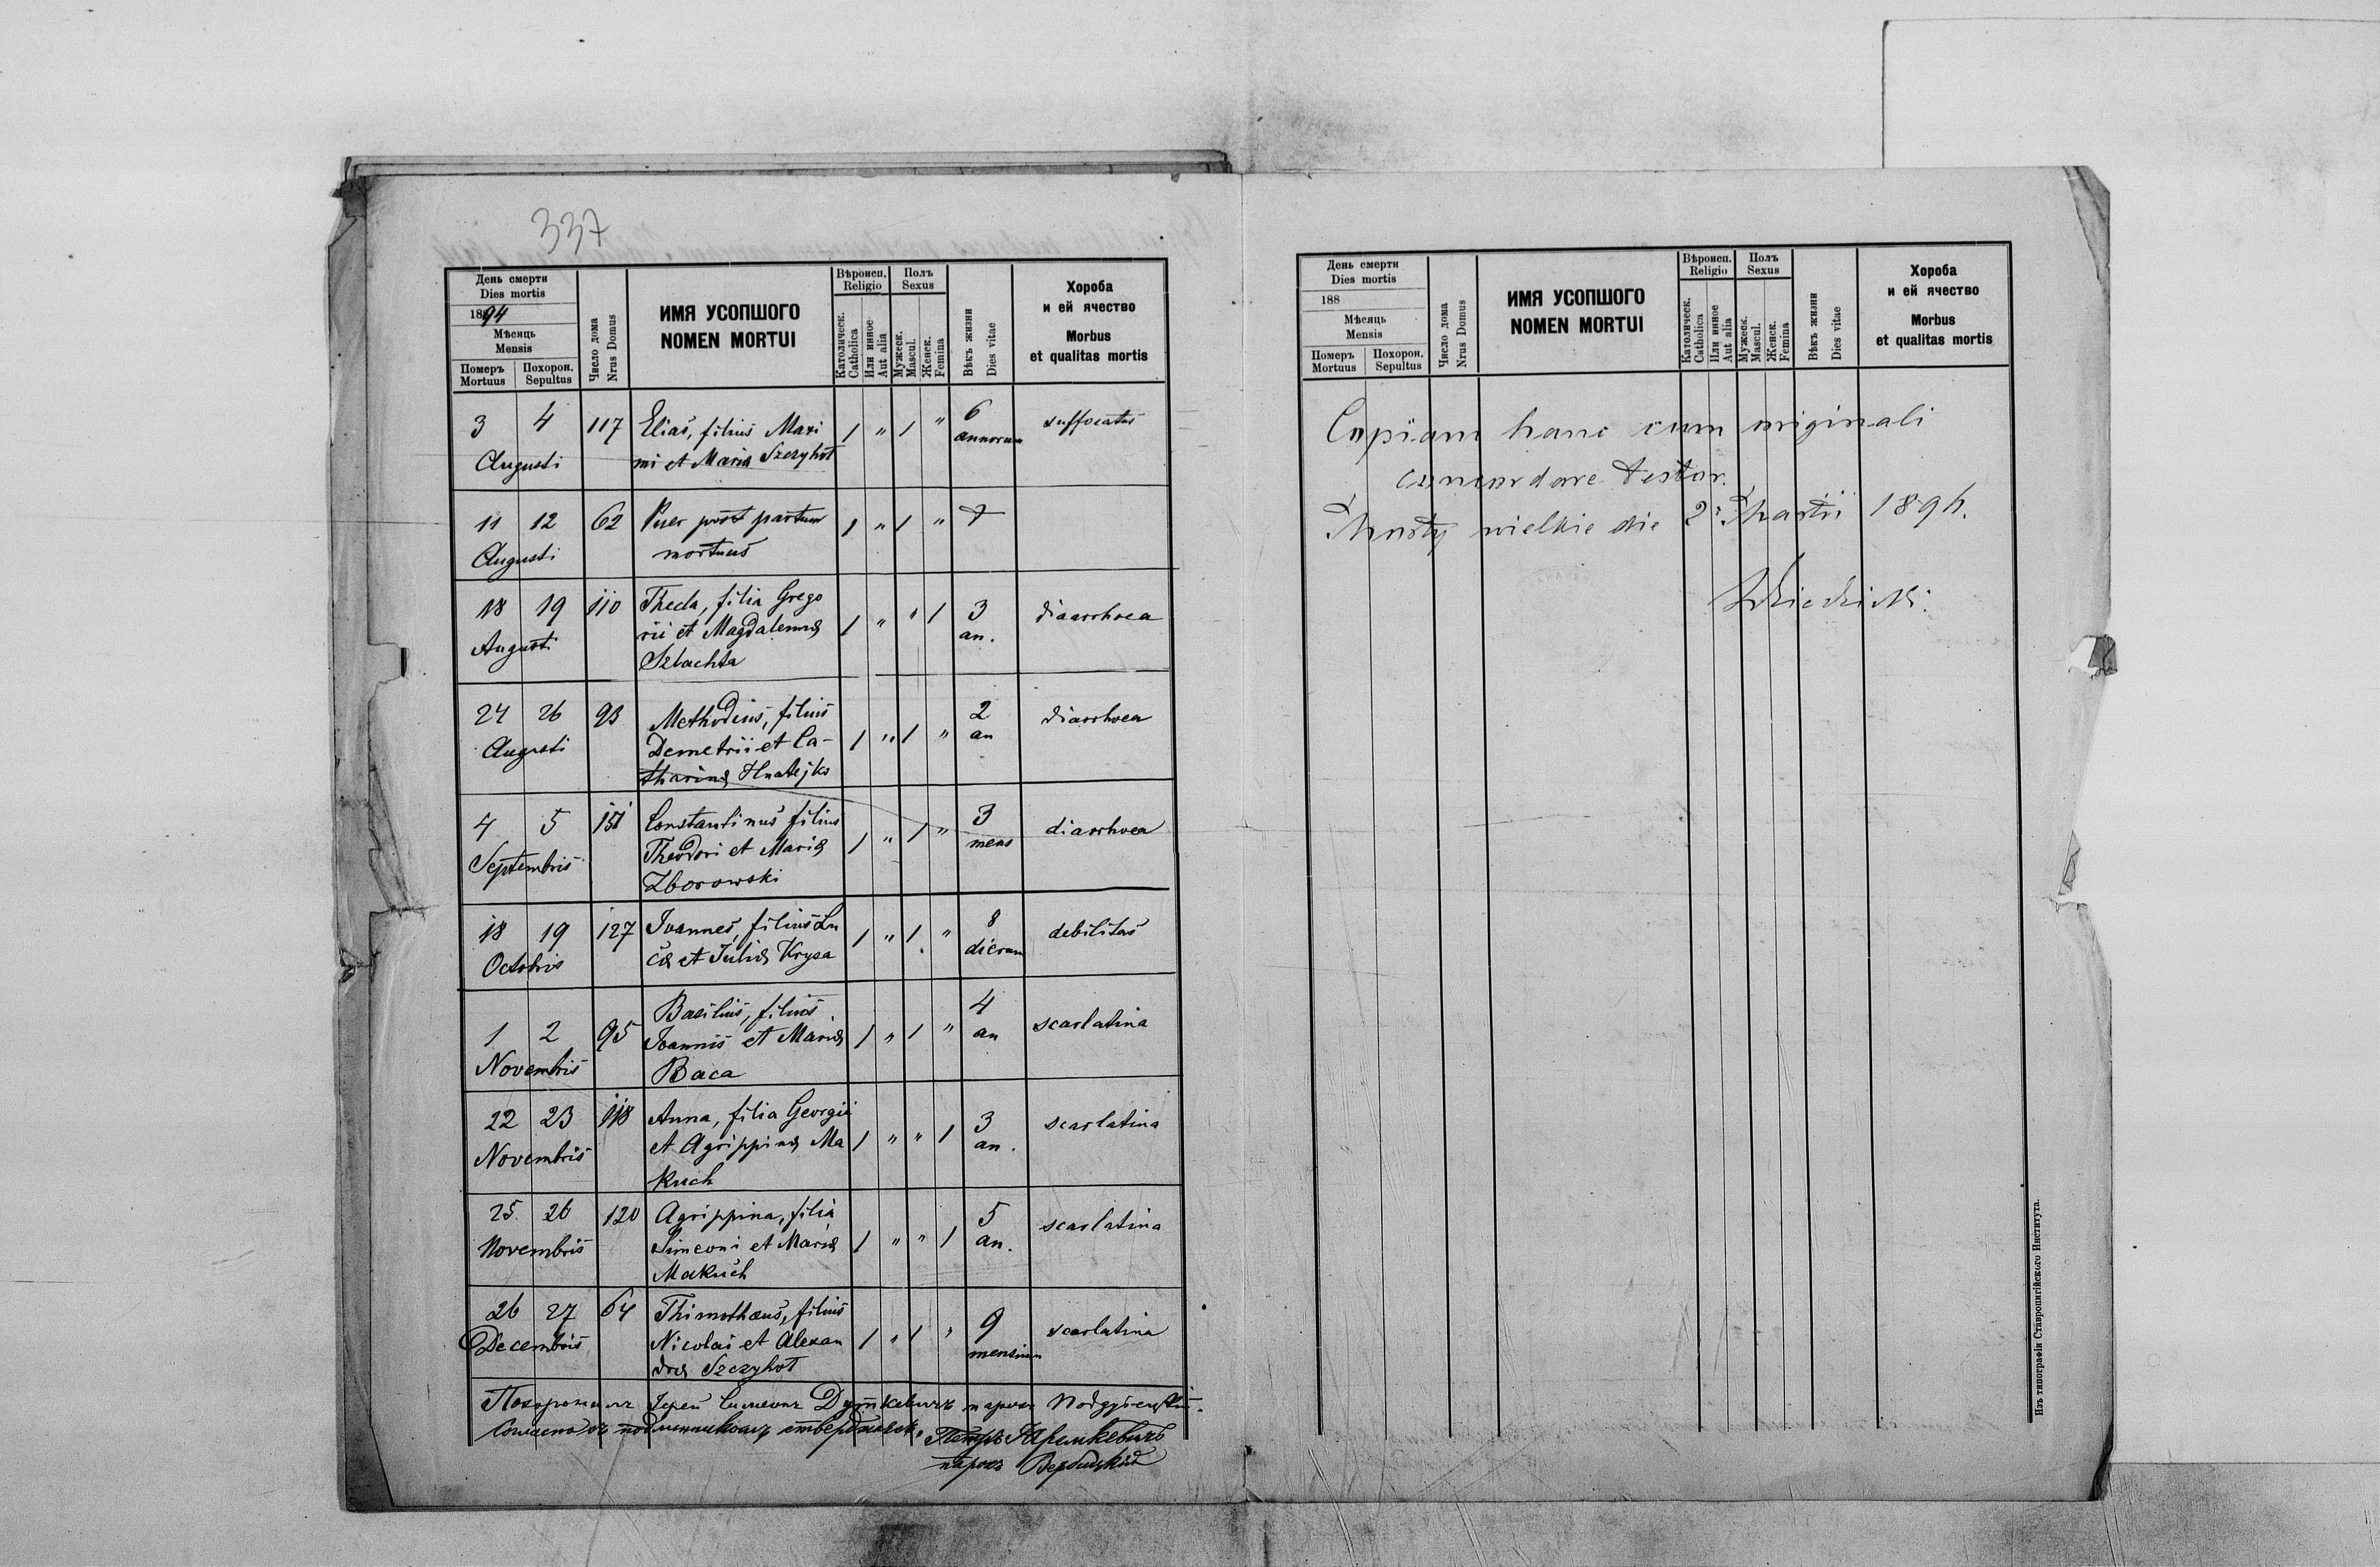 337
День смерти
Dies mortis
1894
Мѣсяць
Mensis
Померъ
Mortuus
Похорон.
Sepultus
Число дома
Nrus Domus
ИМЯ УСОПШОГО
NOMEN MORTUI
Вѣроисп.
Religio
Католическ.
Catholica
Или инное
Aut alia
Полъ
Sexus
Мужеск.
Mascul.
Женск.
Femina
Вѣкъ жизни
Dies vitae
Хороба
и ей ячество
Morbus
et qualitas mortis
3 4 117 Elias, filius Maxi 1 " 1 " 6 suffocatus
Augusti mi et Maria Szczyhot annorum
11 12 62 Puer post partum 1 " 1 "
Augusti mortuus
18 19 110 Thecla, filia Grego 1 " " 1 3 diaarrhoea
Augusti rii et Magdalenæ an.
Szlachta
24 26 93 Methodius, filius 1 " 1 " 2 diarrhoea
Augusti Demetrii et Ca- an
tharinæ Hnatejko
4 5 151 Constantinus filius 1 " 1 " 3 diarrhoea
Septembris Theodori et Mariæ mens
Zborowski
18 19 127 Joannes, filius Lu 1 " 1 " 8 debilitas
Octobris cæ et Juliæ Krysa dierum
1 2 95 Basilius, filius 1 " 1 " 4 scarlatina
Novembris Joannis et Mariæ an
Baca
22 23 118 Anna, filia Georgii 1 " " 1 3 scarlatina
Novembris et Agrippinæ Ma an.
kuch
25 26 120 Agrippina, filia 1 " " 1 5 scarlatina
Novembris Simeoni et Mariæ an.
Makuch
26 27 64 Thimothæus, filius 1 " 1 " 9 scarlatina
Decembris Nicolai et Alexan mensium
dræ Szczyhot
Похоронилъ Іерей Симеонъ парох
парох Вербицкій
День смерти
Dies mortis
188
Мѣсяць
Mensis
Померъ
Mortuus
Похорон.
Sepultus
Число дома
Nrus Domus
ИМЯ УСОПШОГО
NOMEN MORTUI
Вѣроисп.
Religio
Католическ.
Catholica
Или инное
Aut alia
Полъ
Sexus
Мужеск.
Mascul.
Женск.
Femina
Вѣкъ жизни
Dies vitae
Хороба
и ей ячество
Morbus
et qualitas mortis
Copiam hanc cum originali
concordare testor.
wielkie die 2
Изъ типографіи Ставропигійского Института.